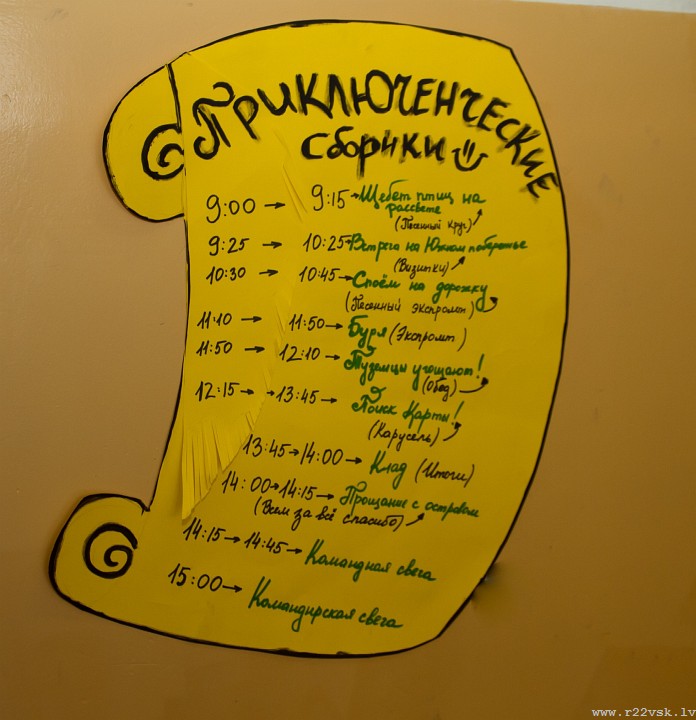 Приключенческие
сборики
9:00 → 9:15 → Щебет птиц на
рассвете
(Песенный круг)
9:25 → 10:25 → Встреча на Южном побережье
(Визитки)
10:30 → 10:45 → Споём на дорожку
(Песенный экспромт)
11:10 → 11:50 → Буря (Экспромт)
11:50 → 12:10 → Туземцы угощают!
(Обед)
12:15 → → 13:45 → Поиск Карты!
(Карусель)
13:45 → 14:00 → Клад (Итоги)
14:00 → 14:15 → Прощание с островом
(Всем за всё спасибо)
14:15 → 14:45 → Командная свега
15:00 → Командирская свега
www.r22vsk.lv